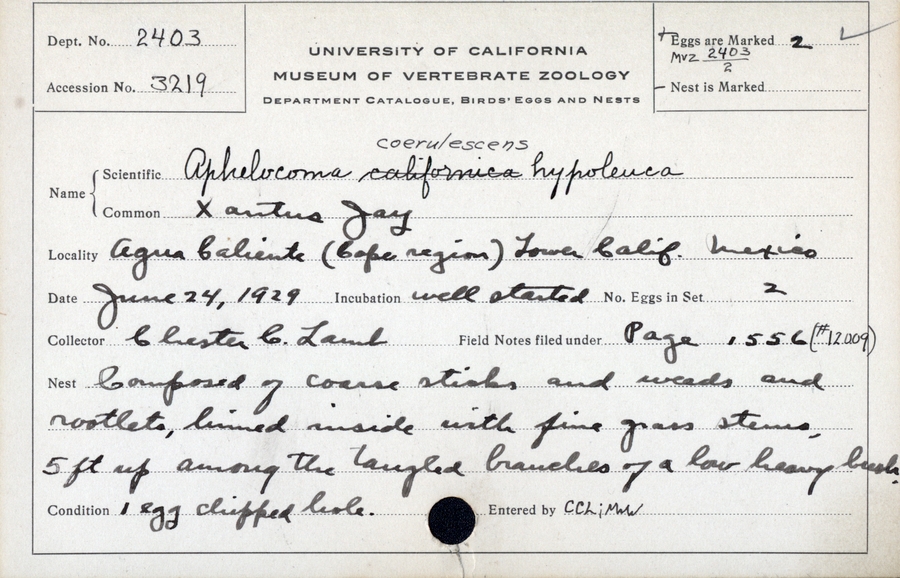 Dept. No. 2403
Accession No. 3219
UNIVERSITY OF CALIFORNIA
MUSEUM OF VERTEBRATE ZOOLOGY
DEPARTMENT CATALOGUE, BIRDS' EGGS AND NESTS
+ Eggs are Marked 2 ✓
MVZ 2403/2
– Nest is Marked
coerulescens
Name { Scientific Aphelocoma californica hypoleuca
Common Xantus Jay
Locality Agua Caliente (Cape region) Lower Calif. Mexico
Date June 24, 1929 Incubation well started No. Eggs in Set 2
Collector Chester C. Lamb Field Notes filed under Page 1556 (#12009)
Nest Composed of coarse sticks and weeds and
rootlets, linned inside with fine grass stems,
5 ft up among the tangled branches of a low heavy bush.
Condition 1 egg chipped hole. Entered by CCL; MWW